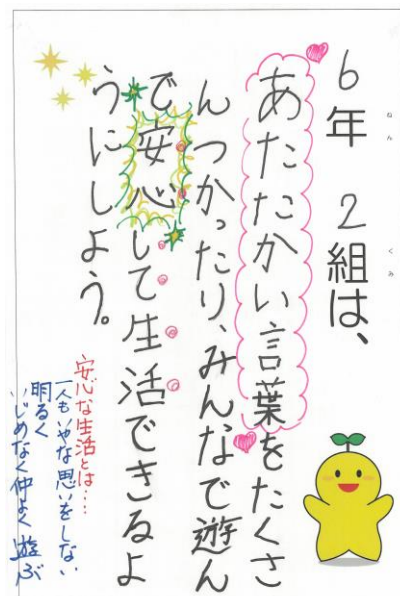 6年 2組は、
あたたかい言葉をたくさ
んつかったり、みんなで遊ん
で安心して生活できるよ
うにしよう。
安心な生活とは…
一人もいやな思いをしない
明るく
いじめなく仲よく遊ぶ